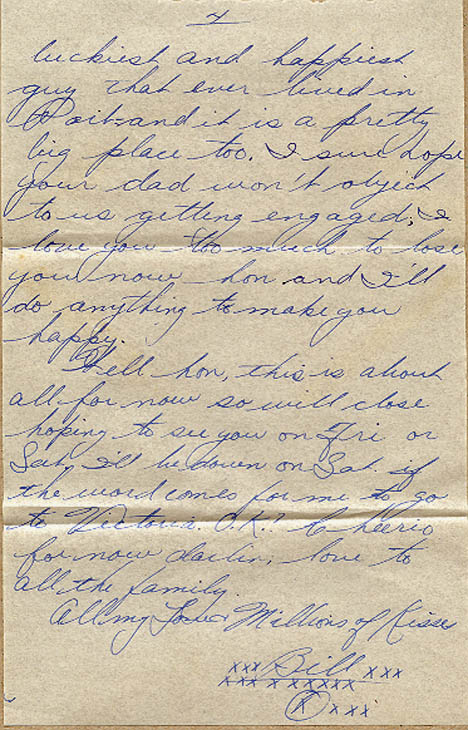 4
luckiest and happiest
guy that ever lived in
and it is a pretty
big place too. I sure hope
your dad won't object
to us getting engaged; I
love you too much to lose
you now hon and I'll
do anything to make you
happy.
Well hon, this is about
all for now so will close
hoping to see you on Fri or
Sat. I'll be down on Sat. if
the word comes for me to go
to Victoria. O.K.? Cheerio
for now darlin, love to
all the family.
All my Love & Millions of Kisses
xxx Bill xxx
xxx x xxxxx
x xxx